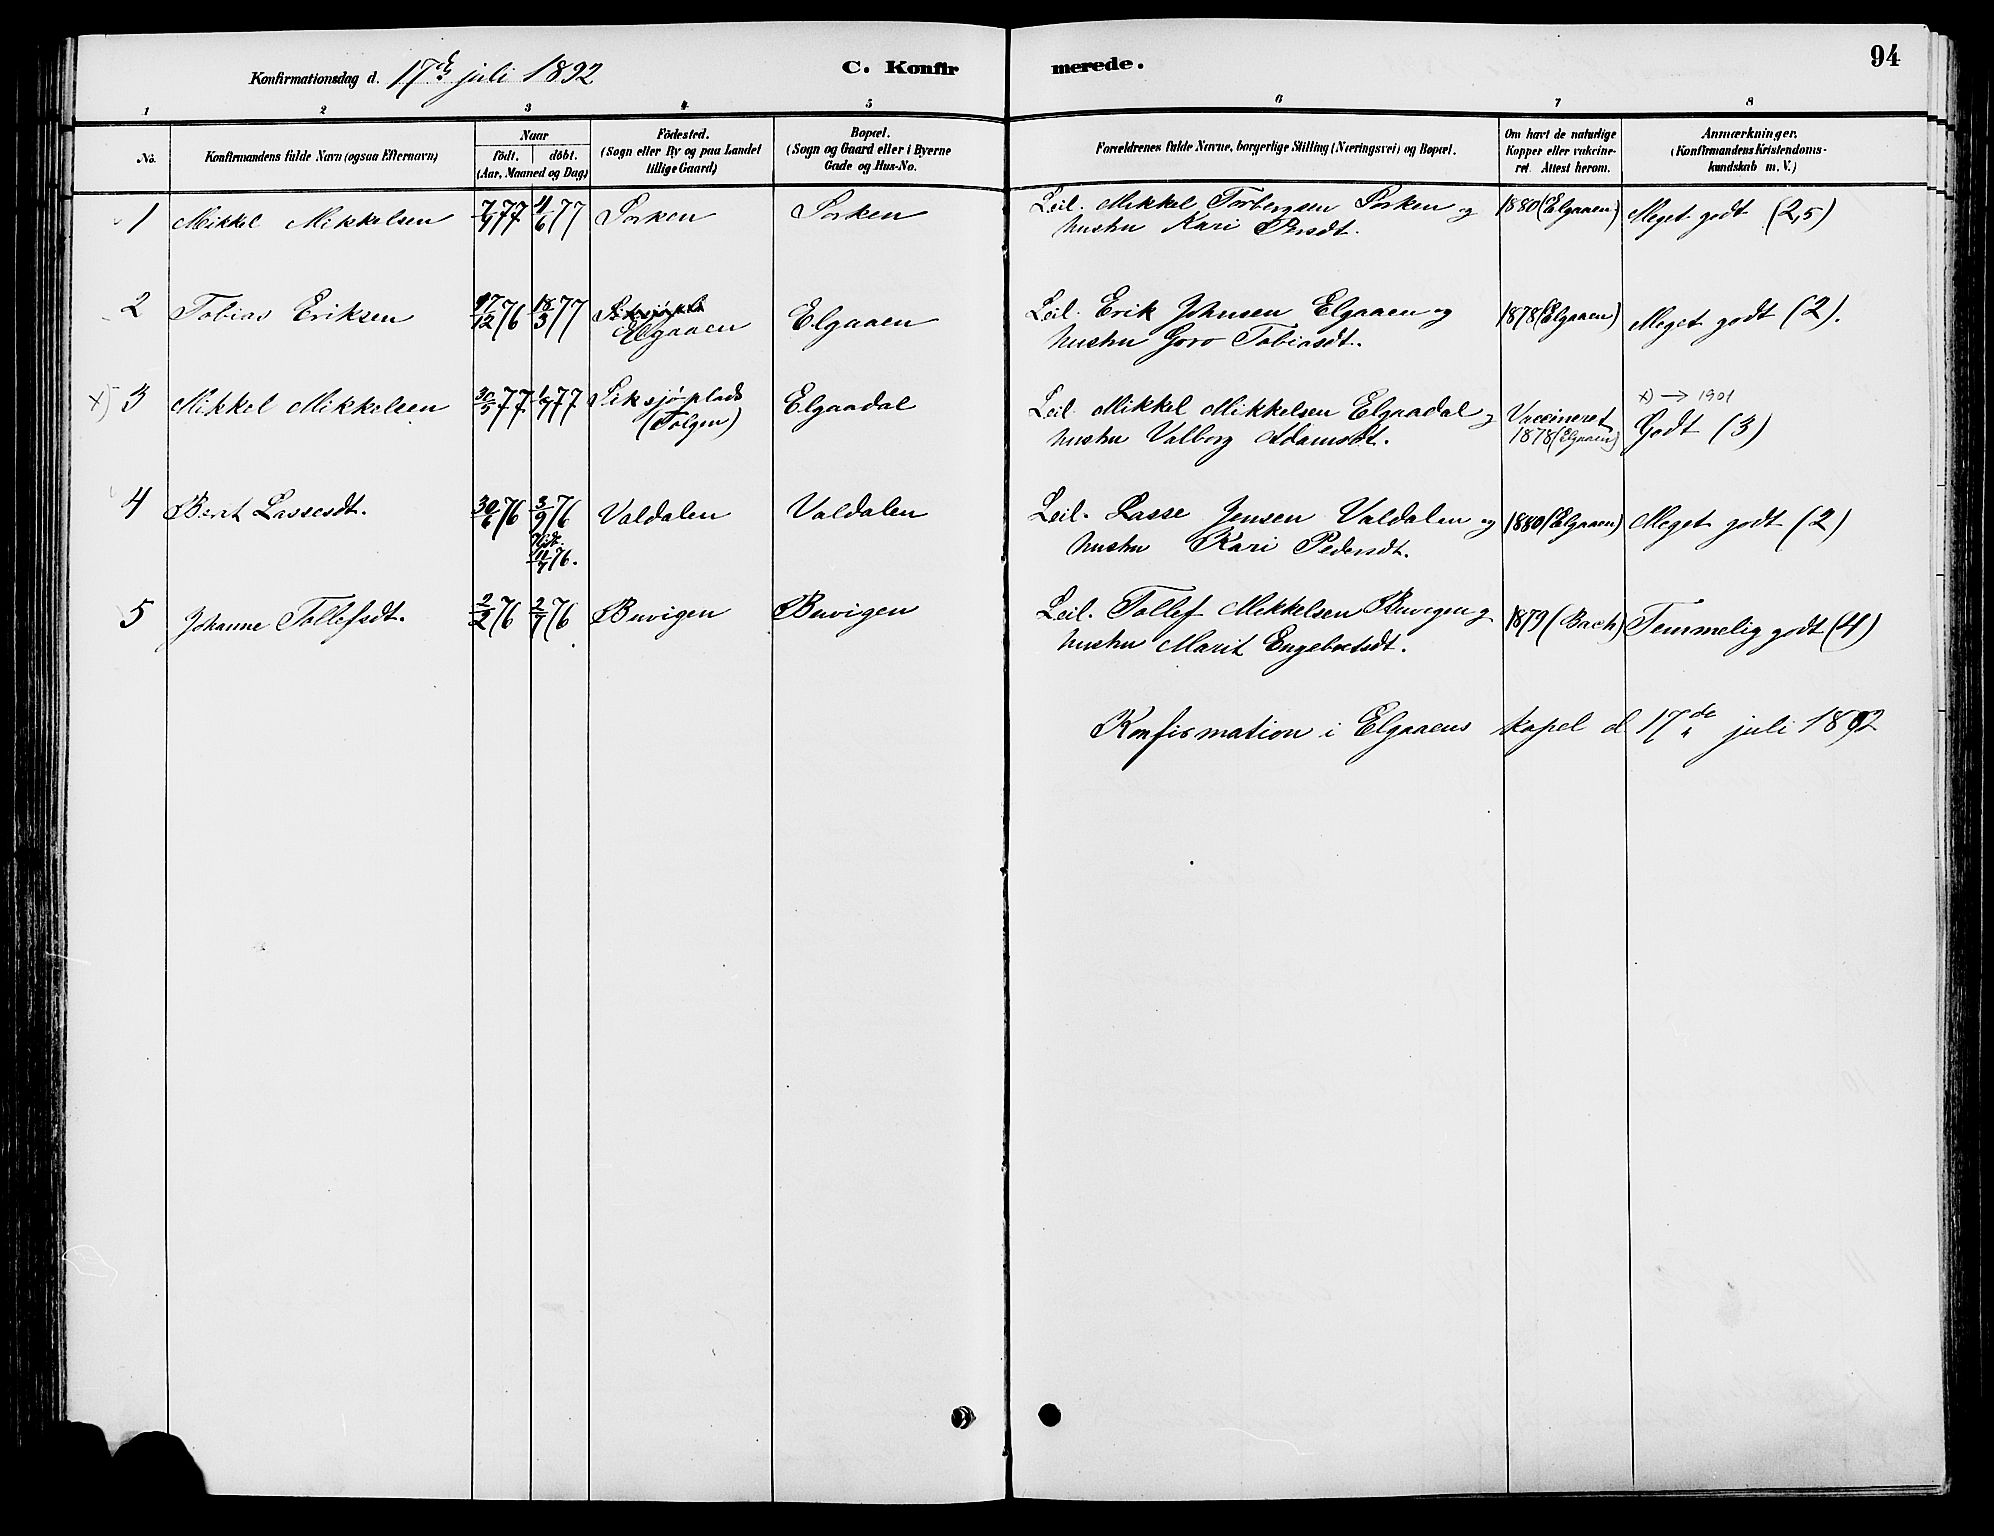 Konfirmationsdag d. 17de juli 1892
C. Konfirmerede.
94
1 2 3 4 5 6 7 8
No.
Konfirmandens fulde Navn (ogsaa Efternavn)
Naar
födt. döbt.
(Aar, Maaned og Dag)
Födested.
(Sogn eller By og paa Landet
tillige Gaard)
Bopæl.
(Sogn og Gaard eller i Byerne
Gade og Hus-No.
Forældrenes fulde Navne, borgerlige Stilling (Næringsvei) og Bopæl.
Om havt de naturlige
Kopper eller vakcine-
ret. Attest herom.
Anmærkninger.
(Konfirmandens Kristendoms-
kundskab m. V.)
1 Mikkel Mikkelsen 7/4 77 4/6 77 Sorken Sorken Leil. Mikkel Torbergsen Sorken og 1880 (Elgaaen) Meget godt (2,5)
hustru Kari Persdt.
2 Tobias Eriksen 17/12 76 18/3 77 Elgaaen Elgaaen Leil. Erik Johnsen Elgaaen og 1878 (Elgaaen) Meget godt (2).
hustru Goro Tobiasdt.
x) 3 Mikkel Mikkelsen 30/5 77 1/7 77 Siksjøplads Elgaadal Leil. Mikkel Mikkelsen Elgaadal og Vaccineret x) → 1901
(Tolgen) hustru Valborg Adamsdt. 1878 (Elgaaen) Godt (3)
4 Berit Lassesdt. 30/6 76 3/9 76 Valdalen Valdalen Leil. Lasse Jensen Valdalen og 1880 (Elgaaen) Meget godt (2)
Hjdt. 12/7 76. hustru Kari Pedersdt.
5 Johanne Tollefsdt. 2/2 76 2/7 76 Buvigen Buvigen Leil. Tollef Mikkelsen Buvigen og 1879 (Bach) Temmelig godt (4)
hustru Marit Engebretsdt.
Konfirmation i Elgaaens kapel d 17de juli 1892